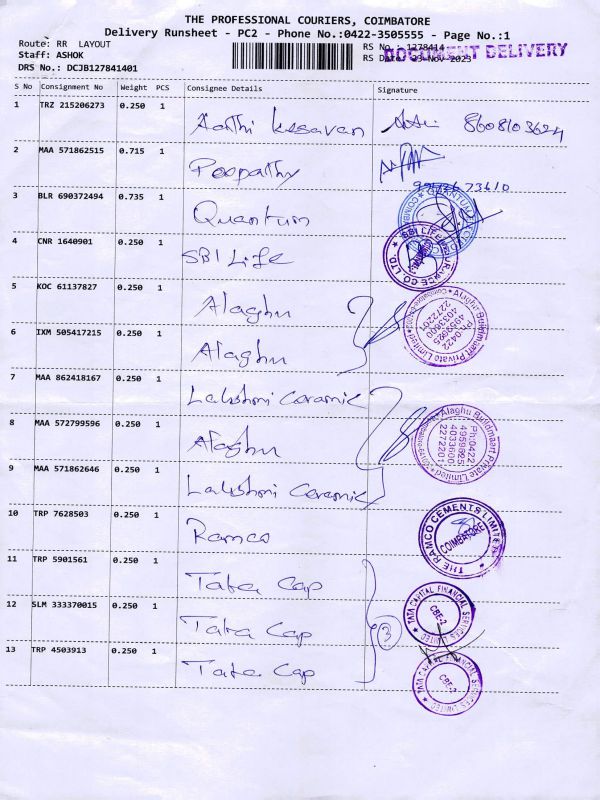 THE PROFESSIONAL COURIERS, COIMBATORE
Delivery Runsheet - PC2 - Phone No.:0422-3505555 - Page No.:1
Route: RR LAYOUT
RS No.: 1278414
DOCUMENT DELIVERY
Staff: ASHOK
RS Date: 23-Nov-2023
DRS No.: DCJB127841401
S No Consignment No Weight PCS Consignee Details Signature
1 TRZ 215206273 0.250 1 Aarthi Kesavan 8608103624
2 MAA 571862515 0.715 1 Poopathy
3 BLR 690372494 0.735 1 Quantum
4 CNR 1640901 0.250 1 SBI Life
SBI LIFE
5 KOC 61137827 0.250 1 Alaghu
Alaghu Buildmaart Private Limited
Ph:0422
4959825
4033600
2272201
6 IXM 505417215 0.250 1 Alaghu
7 MAA 862418167 0.250 1 Lakshmi Ceramic
8 MAA 572799596 0.250 1 Alaghu
Alaghu Buildmaart Private Limited
Ph:0422
4959825
4033600
2272201
9 MAA 571862646 0.250 1 Lakshmi Ceramic
10 TRP 7628503 0.250 1 Ramco
THE RAMCO CEMENTS LIMITED
COIMBATORE
11 TRP 5901561 0.250 1 Tata Cap
12 SLM 333370015 0.250 1 Tata Cap
3
TATA CAPITAL FINANCIAL SERVICES LIMITED
CBE-2
13 TRP 4503913 0.250 1 Tata Cap
TATA CAPITAL FINANCIAL SERVICES LIMITED
CBE-2